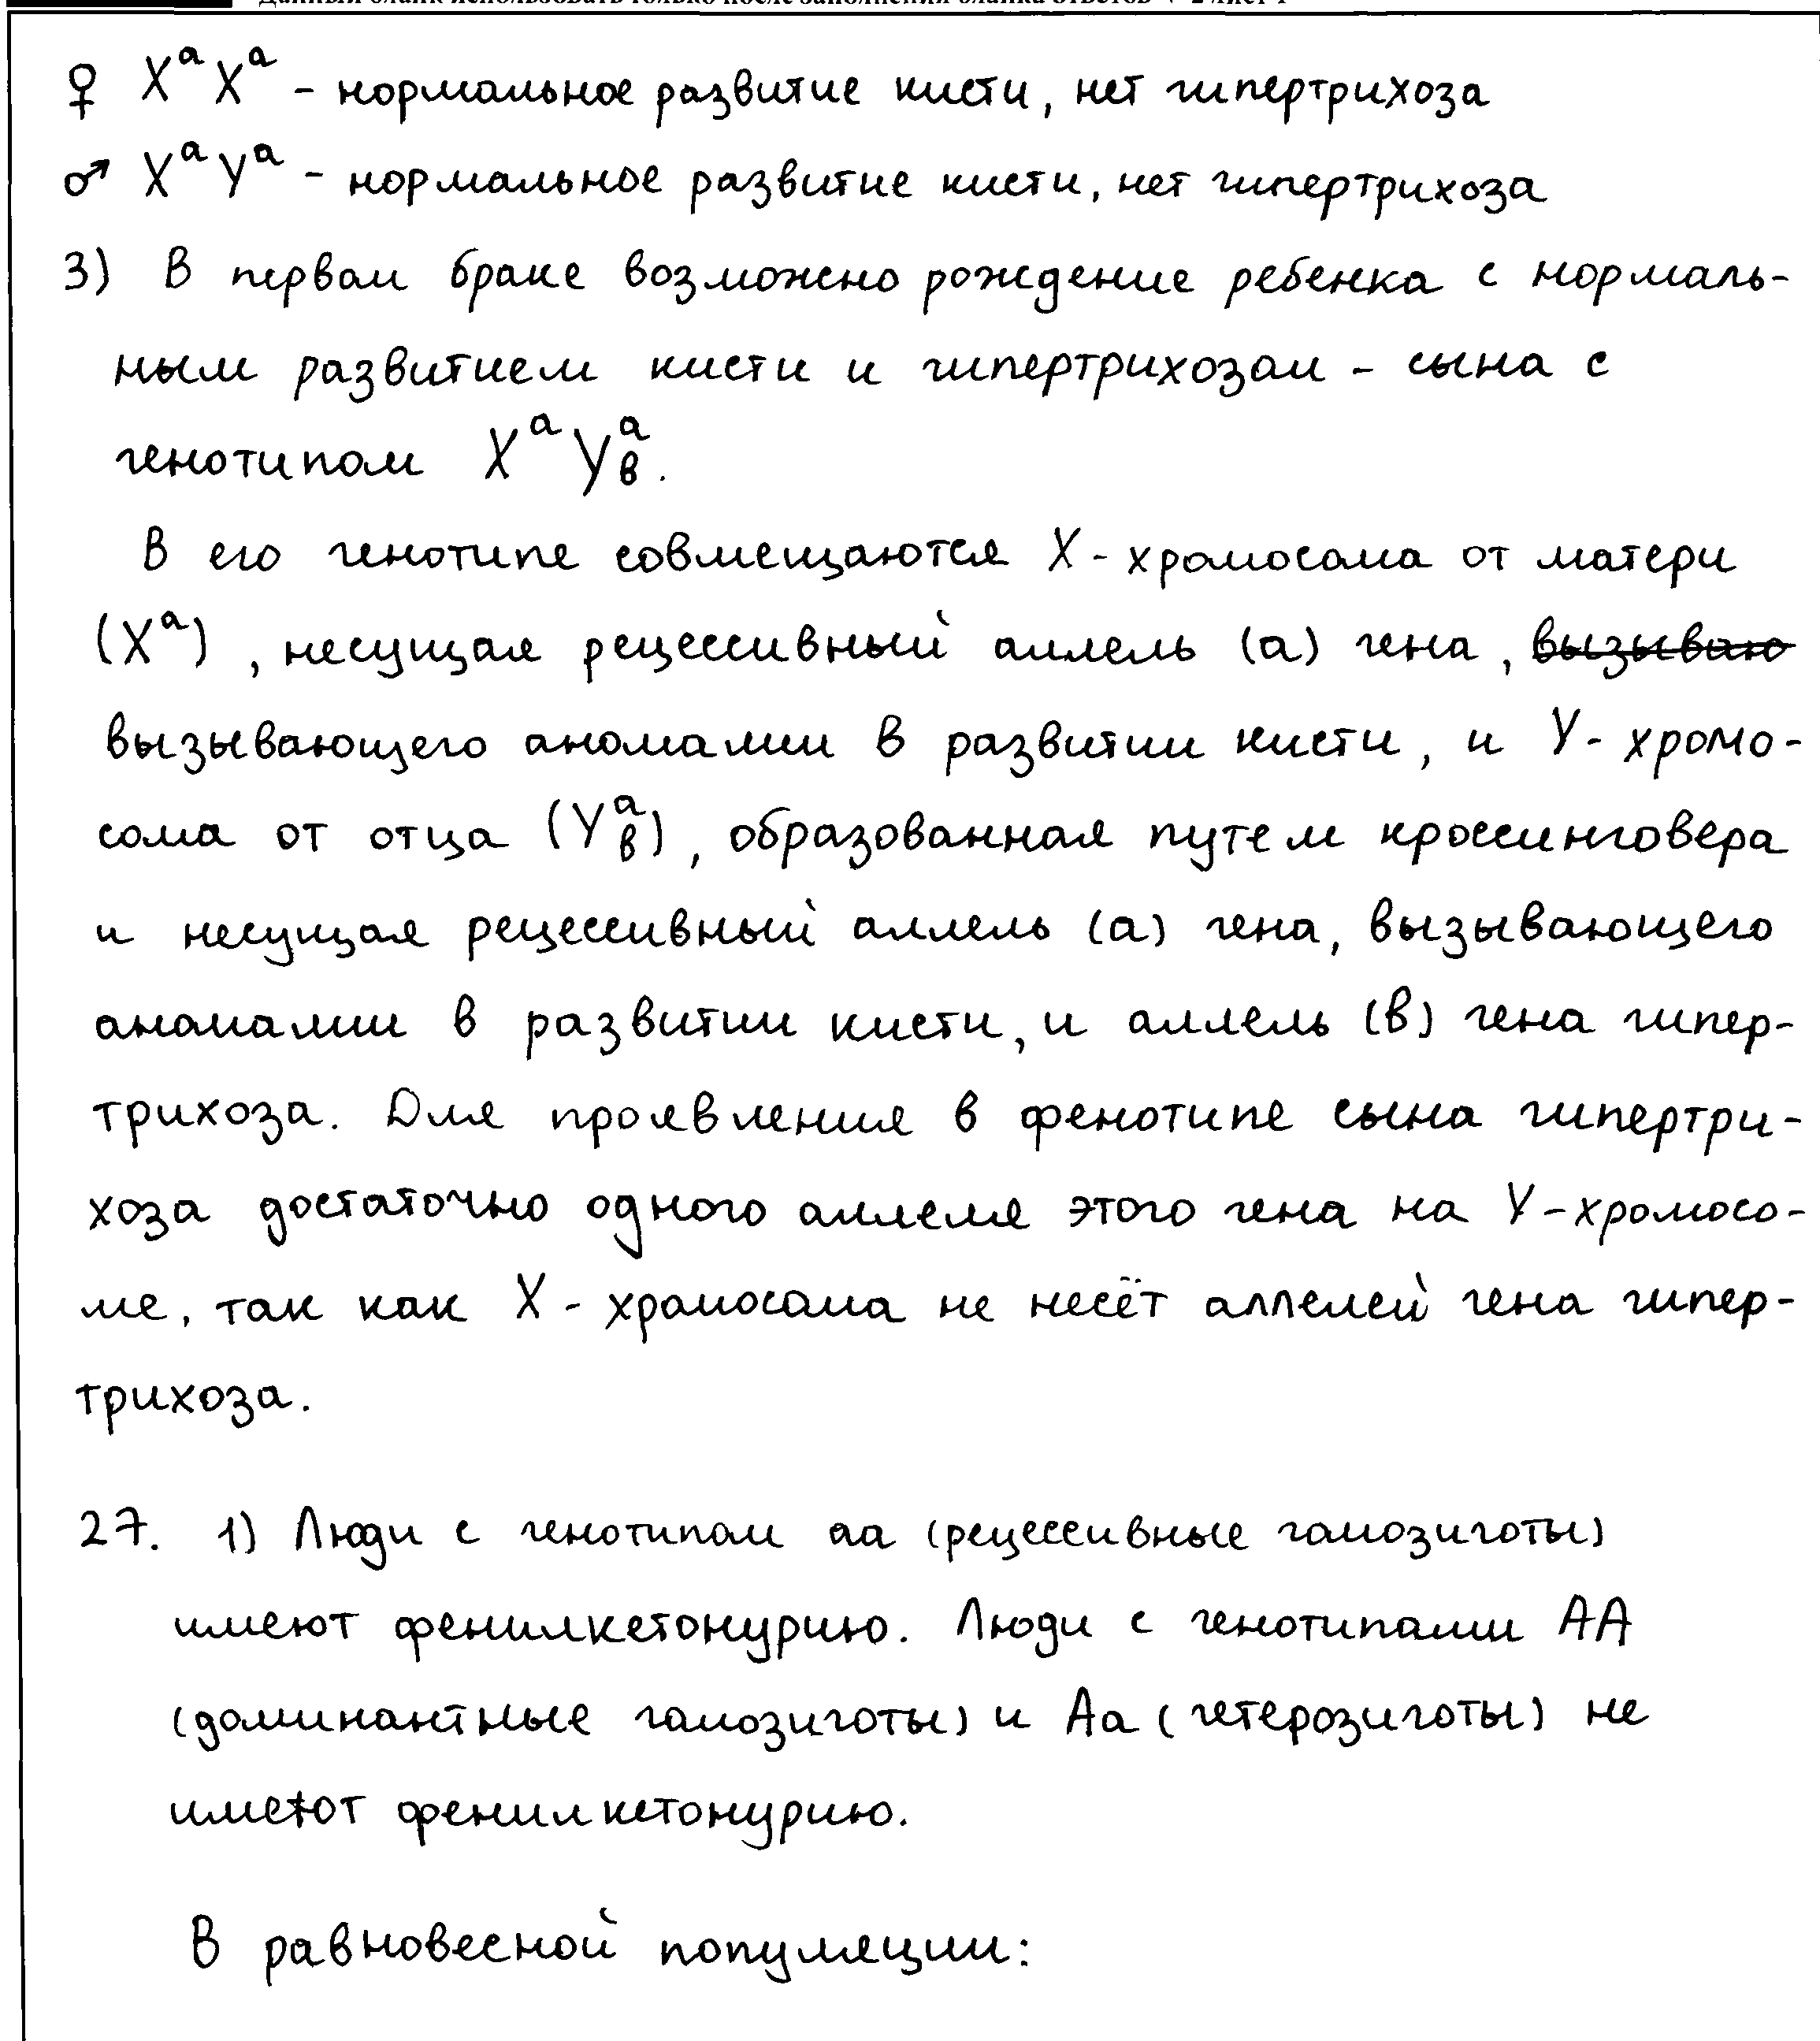 ♀ XᵃXᵃ - нормальное развитие кисти, нет гипертрихоза
♂ XᵃYᵃ - нормальное развитие кисти, нет гипертрихоза
3) В первом браке возможно рождение ребенка с нормаль-
ным развитием кисти и гипертрихозом - сына с
генотипом XᵃYᵃв.
В его генотипе совмещаются X-хромосома от матери
(Xᵃ), несущая рецессивный аллель (а) гена, вызываю
вызывающего аномалии в развитии кисти, и Y-хромо-
сома от отца (Yᵃв), образованная путем кроссинговера
и несущая рецессивный аллель (а) гена, вызывающего
аномалии в развитии кисти, и аллель (в) гена гипер-
трихоза. Для проявления в фенотипе сына гипертри-
хоза достаточно одного аллеля этого гена на Y-хромосо-
ме, так как X-хромосома не несёт аллелей гена гипер-
трихоза.
27. 1) Люди с генотипом аа (рецессивные гомозиготы)
имеют фенилкетонурию. Люди с генотипами АА
(доминантные гомозиготы) и Аа (гетерозиготы) не
имеют фенилкетонурию.
В равновесной популяции: